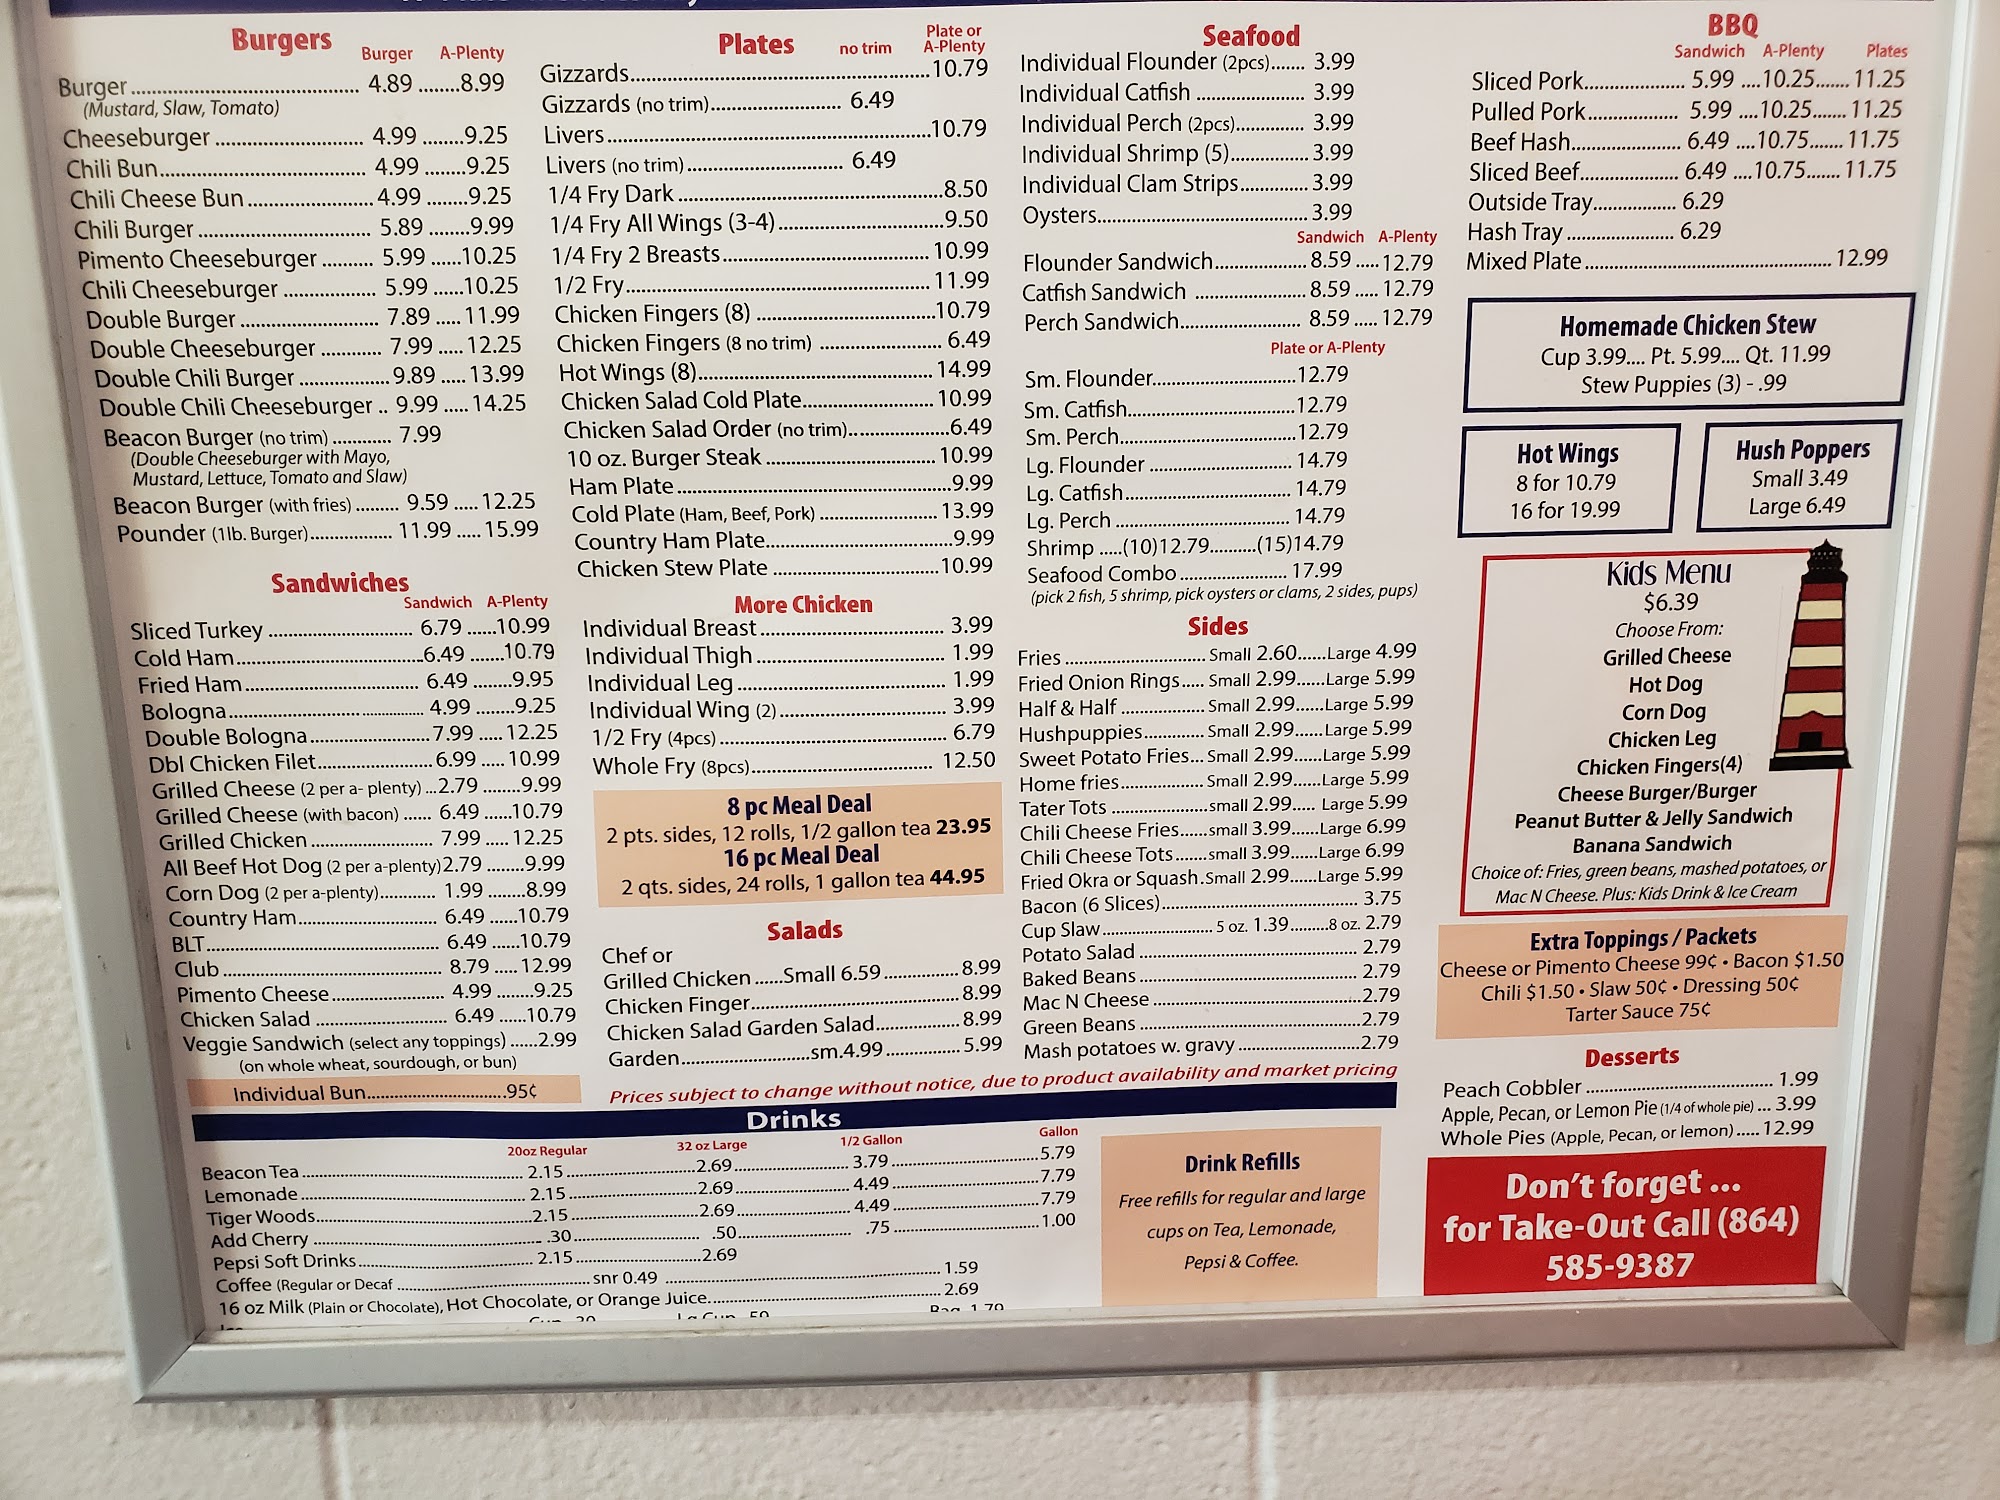 Burgers
Burger A-Plenty
Burger 4.89 8.99
(Mustard, Slaw, Tomato)
Cheeseburger 4.99 9.25
Chili Bun 4.99 9.25
Chili Cheese Bun 4.99 9.25
Chili Burger 5.89 9.99
Pimento Cheeseburger 5.99 10.25
Chili Cheeseburger 5.99 10.25
Double Burger 7.89 11.99
Double Cheeseburger 7.99 12.25
Double Chili Burger 9.89 13.99
Double Chili Cheeseburger 9.99 14.25
Beacon Burger (no trim) 7.99
(Double Cheeseburger with Mayo,
Mustard, Lettuce, Tomato and Slaw)
Beacon Burger (with fries) 9.59 12.25
Pounder (1lb. Burger) 11.99 15.99
Sandwiches
Sandwich A-Plenty
Sliced Turkey 6.79 10.99
Cold Ham 6.49 10.79
Fried Ham 6.49 9.95
Bologna 4.99 9.25
Double Bologna 7.99 12.25
Dbl Chicken Filet 6.99 10.99
Grilled Cheese (2 per a- plenty) 2.79 9.99
Grilled Cheese (with bacon) 6.49 10.79
Grilled Chicken 7.99 12.25
All Beef Hot Dog (2 per a-plenty) 2.79 9.99
Corn Dog (2 per a-plenty) 1.99 8.99
Country Ham 6.49 10.79
BLT 6.49 10.79
Club 8.79 12.99
Pimento Cheese 4.99 9.25
Chicken Salad 6.49 10.79
Veggie Sandwich (select any toppings) 2.99
(on whole wheat, sourdough, or bun)
Individual Bun .95¢
Plates
no trim Plate or
A-Plenty
Gizzards 10.79
Gizzards (no trim) 6.49
Livers 10.79
Livers (no trim) 6.49
1/4 Fry Dark 8.50
1/4 Fry All Wings (3-4) 9.50
1/4 Fry 2 Breasts 10.99
1/2 Fry 11.99
Chicken Fingers (8) 10.79
Chicken Fingers (8 no trim) 6.49
Hot Wings (8) 14.99
Chicken Salad Cold Plate 10.99
Chicken Salad Order (no trim) 6.49
10 oz. Burger Steak 10.99
Ham Plate 9.99
Cold Plate (Ham, Beef, Pork) 13.99
Country Ham Plate 9.99
Chicken Stew Plate 10.99
More Chicken
Individual Breast 3.99
Individual Thigh 1.99
Individual Leg 1.99
Individual Wing (2) 3.99
1/2 Fry (4pcs) 6.79
Whole Fry (8pcs) 12.50
8 pc Meal Deal
2 pts. sides, 12 rolls, 1/2 gallon tea 23.95
16 pc Meal Deal
2 qts. sides, 24 rolls, 1 gallon tea 44.95
Salads
Chef or
Grilled Chicken Small 6.59 8.99
Chicken Finger 8.99
Chicken Salad Garden Salad 8.99
Garden sm.4.99 5.99
Seafood
Individual Flounder (2pcs) 3.99
Individual Catfish 3.99
Individual Perch (2pcs) 3.99
Individual Shrimp (5) 3.99
Individual Clam Strips 3.99
Oysters 3.99
Sandwich A-Plenty
Flounder Sandwich 8.59 12.79
Catfish Sandwich 8.59 12.79
Perch Sandwich 8.59 12.79
Plate or A-Plenty
Sm. Flounder 12.79
Sm. Catfish 12.79
Sm. Perch 12.79
Lg. Flounder 14.79
Lg. Catfish 14.79
Lg. Perch 14.79
Shrimp (10)12.79 (15)14.79
Seafood Combo 17.99
(pick 2 fish, 5 shrimp, pick oysters or clams, 2 sides, pups)
Sides
Fries Small 2.60 Large 4.99
Fried Onion Rings Small 2.99 Large 5.99
Half & Half Small 2.99 Large 5.99
Hushpuppies Small 2.99 Large 5.99
Sweet Potato Fries Small 2.99 Large 5.99
Home fries Small 2.99 Large 5.99
Tater Tots small 2.99 Large 5.99
Chili Cheese Fries small 3.99 Large 6.99
Chili Cheese Tots small 3.99 Large 6.99
Fried Okra or Squash Small 2.99 Large 5.99
Bacon (6 Slices) 3.75
Cup Slaw 5 oz. 1.39 8 oz. 2.79
Potato Salad 2.79
Baked Beans 2.79
Mac N Cheese 2.79
Green Beans 2.79
Mash potatoes w. gravy 2.79
Prices subject to change without notice, due to product availability and market pricing
BBQ
Sandwich A-Plenty Plates
Sliced Pork 5.99 10.25 11.25
Pulled Pork 5.99 10.25 11.25
Beef Hash 6.49 10.75 11.75
Sliced Beef 6.49 10.75 11.75
Outside Tray 6.29
Hash Tray 6.29
Mixed Plate 12.99
Homemade Chicken Stew
Cup 3.99.... Pt. 5.99.... Qt. 11.99
Stew Puppies (3) - .99
Hot Wings
8 for 10.79
16 for 19.99
Hush Poppers
Small 3.49
Large 6.49
Kids Menu
$6.39
Choose From:
Grilled Cheese
Hot Dog
Corn Dog
Chicken Leg
Chicken Fingers(4)
Cheese Burger/Burger
Peanut Butter & Jelly Sandwich
Banana Sandwich
Choice of: Fries, green beans, mashed potatoes, or
Mac N Cheese. Plus: Kids Drink & Ice Cream
Extra Toppings / Packets
Cheese or Pimento Cheese 99¢ • Bacon $1.50
Chili $1.50 • Slaw 50¢ • Dressing 50¢
Tarter Sauce 75¢
Desserts
Peach Cobbler 1.99
Apple, Pecan, or Lemon Pie (1/4 of whole pie) 3.99
Whole Pies (Apple, Pecan, or lemon) 12.99
Don't forget ...
for Take-Out Call (864)
585-9387
Drinks
20oz Regular 32 oz Large 1/2 Gallon Gallon
Beacon Tea 2.15 2.69 3.79 5.79
Lemonade 2.15 2.69 4.49 7.79
Tiger Woods 2.15 2.69 4.49 7.79
Add Cherry .30 .50 .75 1.00
Pepsi Soft Drinks 2.15 2.69
Coffee (Regular or Decaf snr 0.49 1.59
16 oz Milk (Plain or Chocolate), Hot Chocolate, or Orange Juice 2.69
Drink Refills
Free refills for regular and large
cups on Tea, Lemonade,
Pepsi & Coffee.